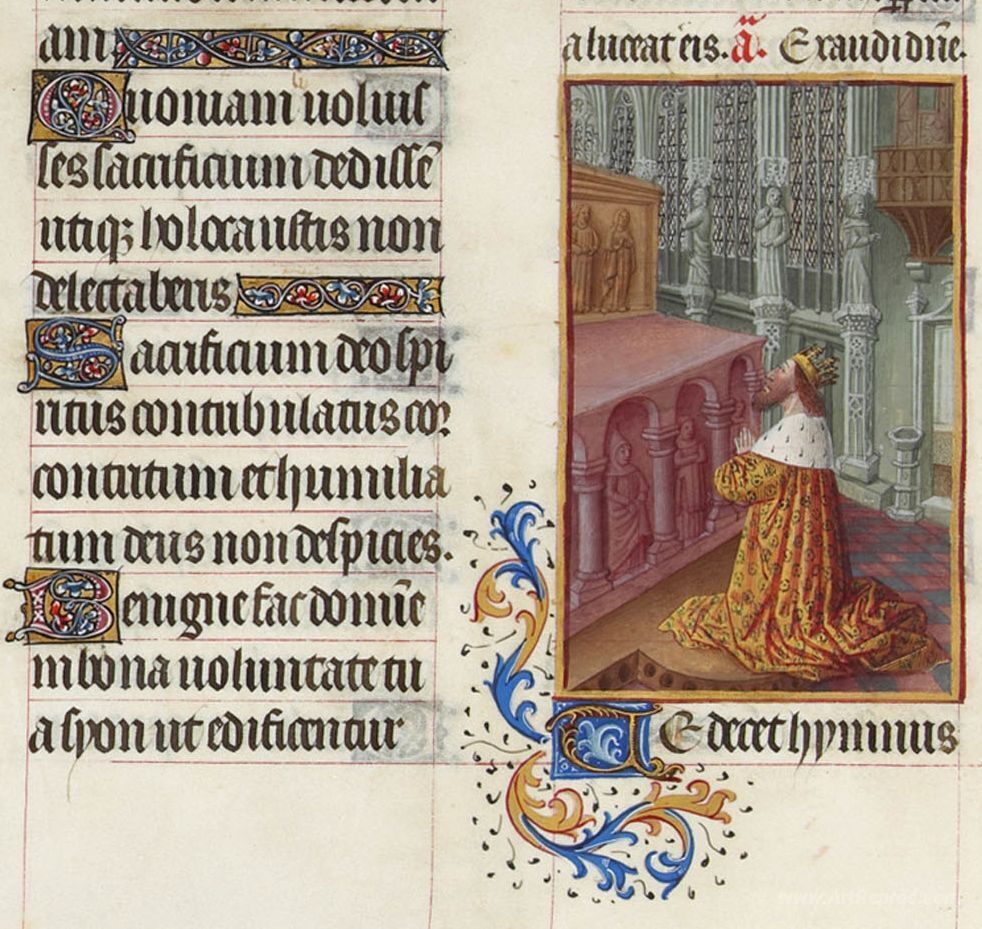 am
Quoniam uoluis
ses sacrificium dedissē
utiqꝫ holocaustis non
delectaberis
Sacrificium deo spi
ritus contribulatus cor
contritum et humilia
tum deus non despicies.
Benigne fac domīe
in bona uoluntate tu
a syon ut edificentur
a luceat eis. a. Exaudi dn̄e.
TE decet hymnus